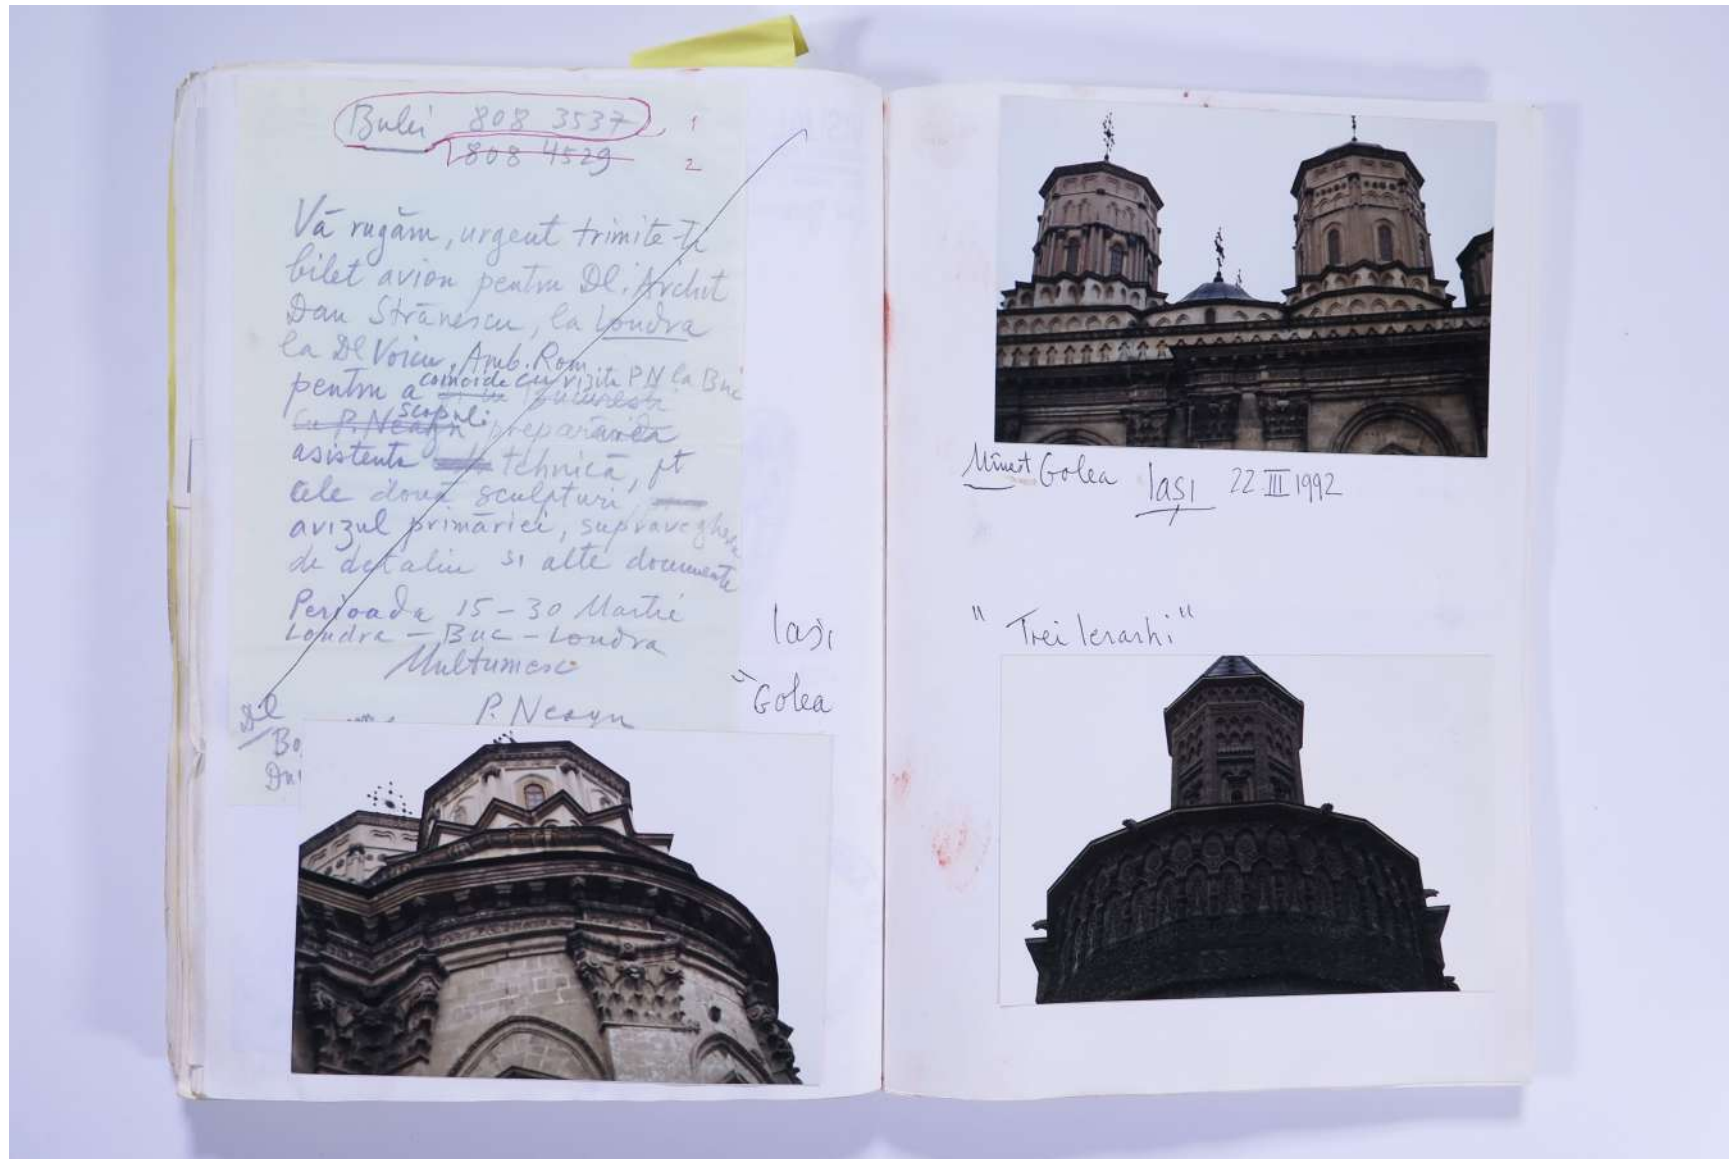 Bulei 808 3537 1
808 4529 2
Vă rugăm, urgent trimite-ți
bilet avion pentru Dl. Archit
Dan Strănescu, la Londra
la Dl Voicu, Amb. Rom
pentru a coincide cu vizita PN la Buc
București
cu P. Neagu scopul: prepararea
asistenta tehnică, pt
cele două sculpturi,
avizul primăriei, supraveghea
de detaliu si alte documente
Perioada 15-30 Martie
Londra - Buc - Londra
Multumesc
P. Neagu
Dl
Bo
Dni
Iași
Golea
Mînast Golea Iași 22 III 1992
"Trei Ierarhi"